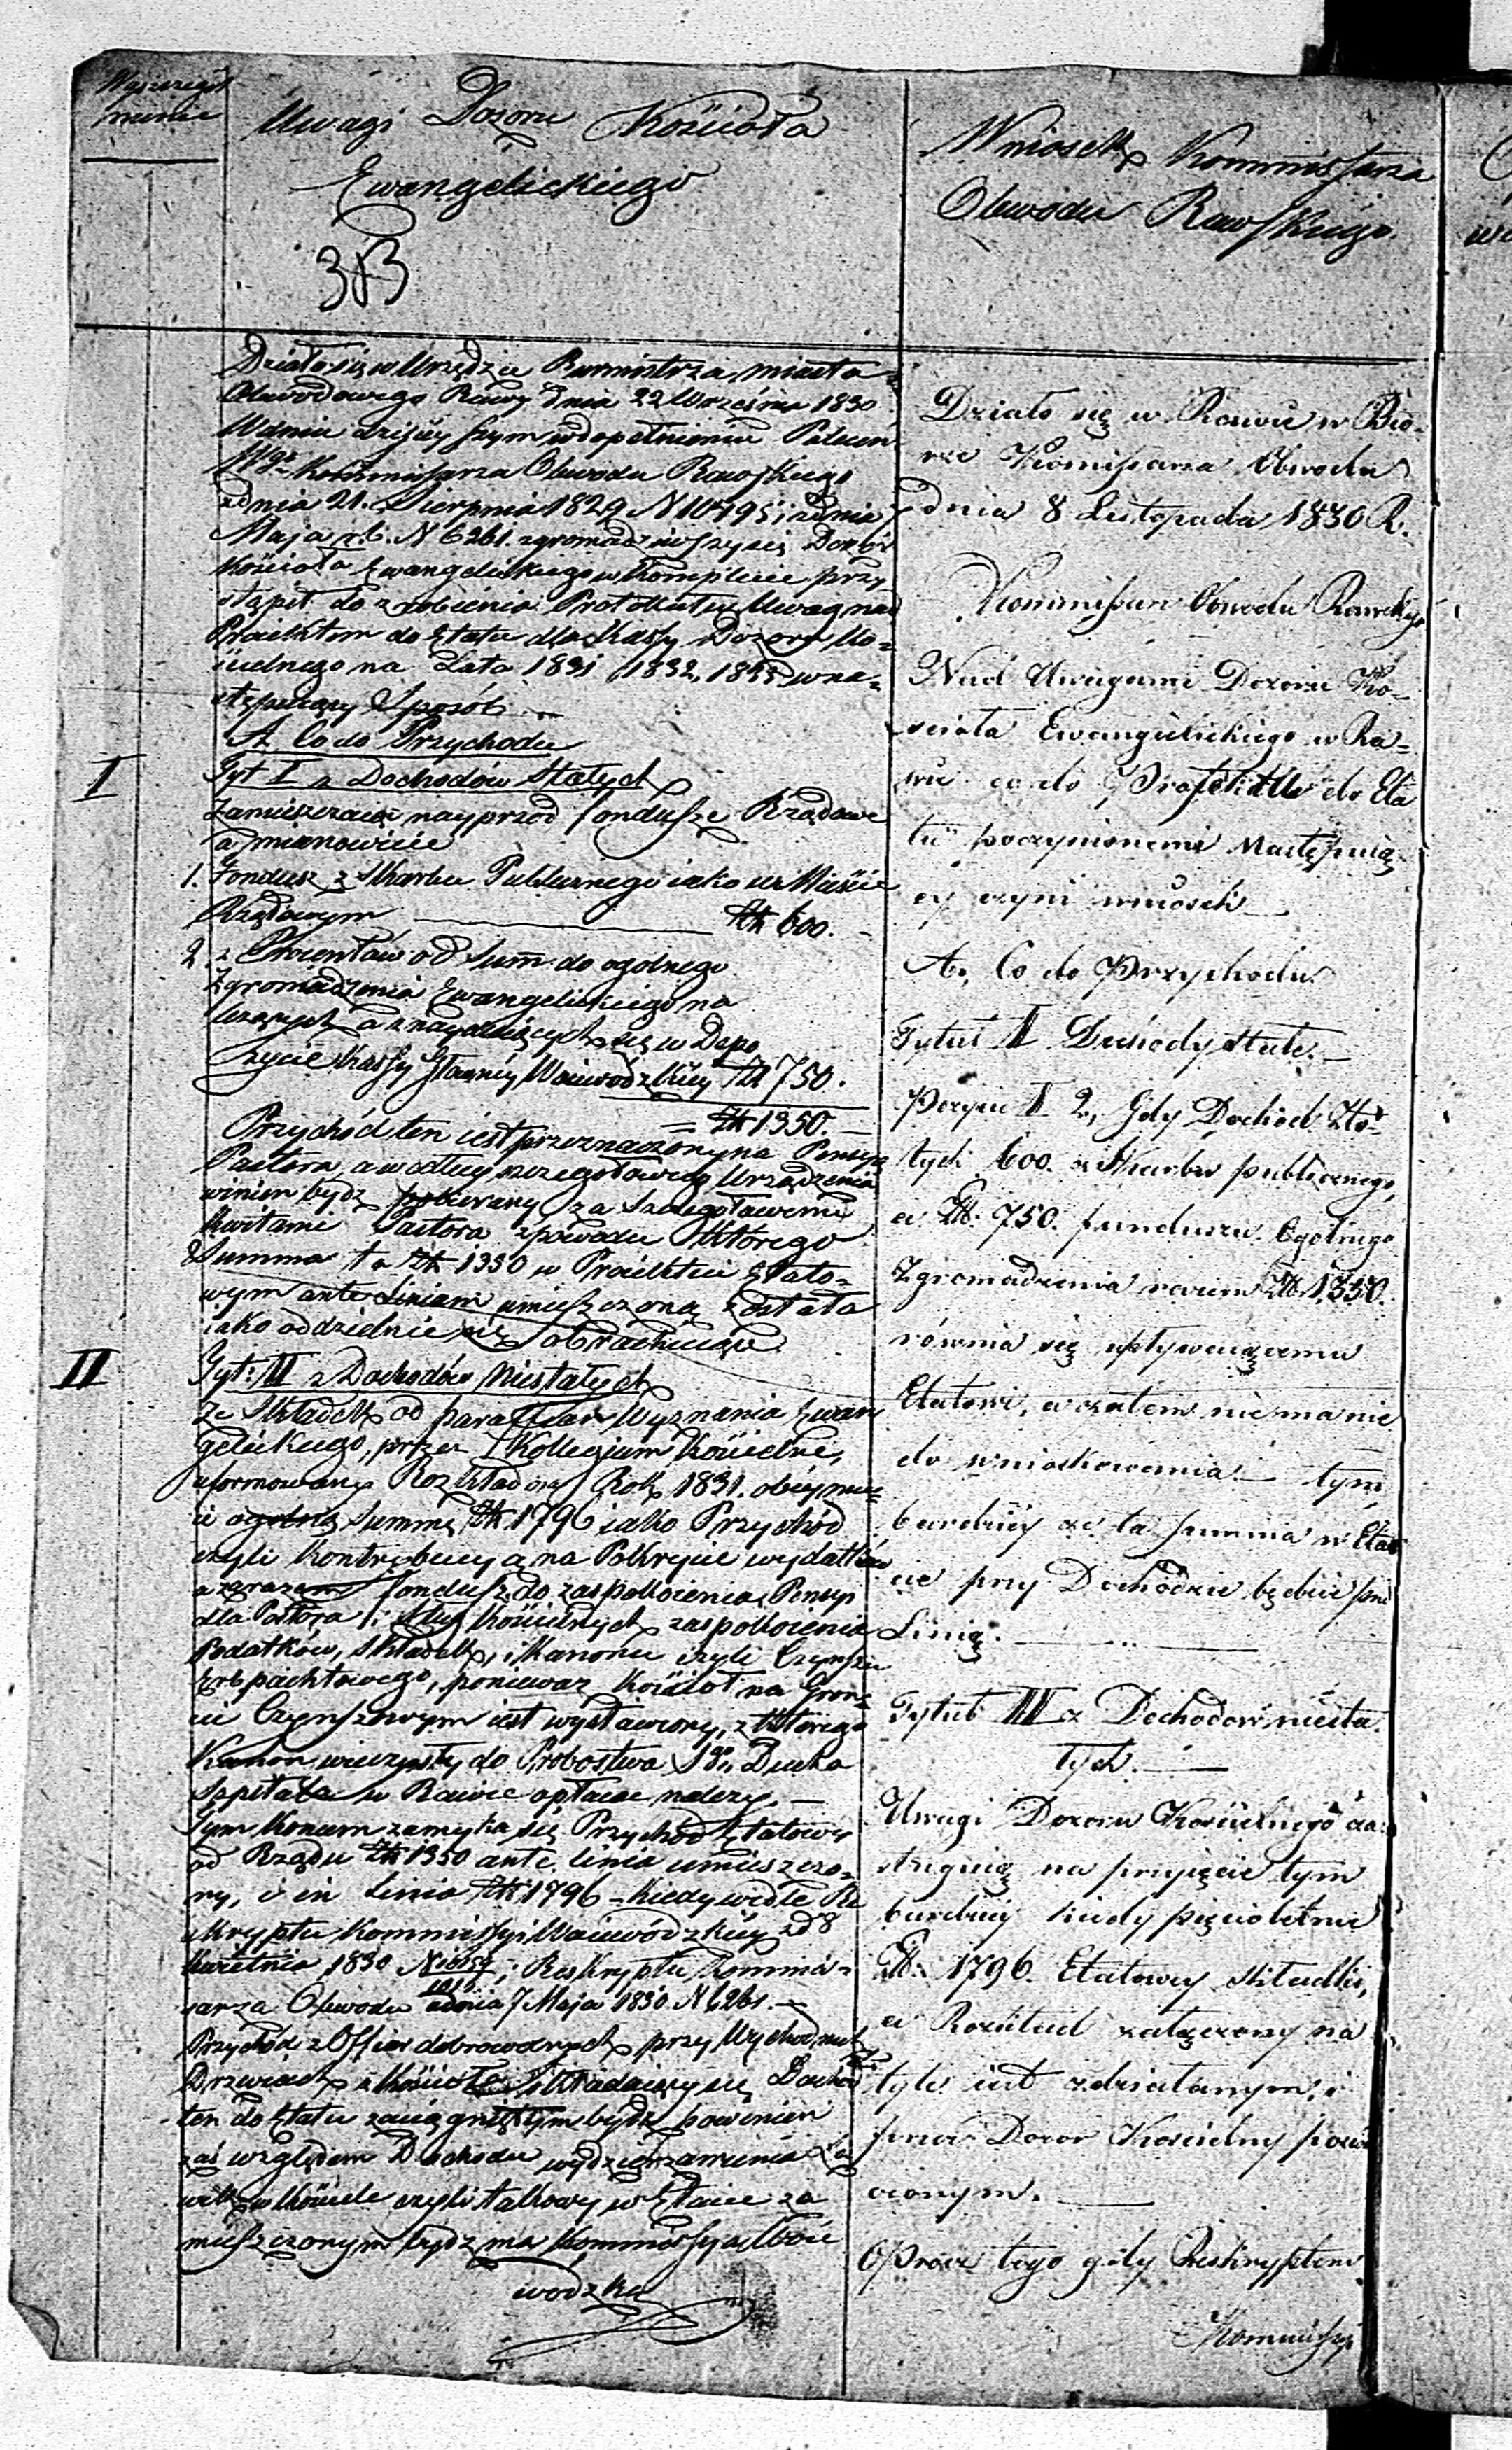 Wyszczegól
nienie
Uwagi Dozoru Kościoła
Ewangelickiego
313
Działo się w Urzędzie Burmistrza miasta
Obwodowego Rawy dnia 22 Września 1830
W dniu dzisieyszym w dopełnieniu Poleceń
Wgo Kommissarza Obwodu Rawskiego
z dnia 21. Sierpnia 1829 N 10195 i z dnia 7
Maja r. b. N 6261. zgromadziwszy się Dozór
Kościoła Ewangelickiego w komplecie przy
stąpił do zrobienia Protokułu Uwag nad
Proiektem do Etatu dla Kassy Dozoru Ko=
ścielnego na Lata 1831, 1832, 1833, w na=
stępuiący Sposób
A. Co do Przychodu
I
Tyt I z Dochodów Stałych
Zamieszczaią nayprzod fondusze Rządowe
a mianowicie
1. Fondusz z Skarbu Publicznego iako w Mieście
Rządowym Złt 600.
2. z Procentów od Summ do ogolnego
Zgromadzenia Ewangelickiego na
leżących a znayduiących się w Depo
zycie Kassy Główney Woiewodzkiey Złt 750.
= Złt 1350.
Przychód ten iest przeznaczony na Pensyą
Pastora, a według szczegołowego Urządzenia
winien bydz pobierany za szczegołowemi
kwitami Pastora z powodu którego
Summa ta Złt 1350 w Proiekcie Etato=
wym ante Liniam umieszczoną została
iako oddzielnie się obrachuiąca.
II
Tyt: II z Dochodów Niestałych
Ze Składek od parafian Wyznania Ewan
gelickiego, przez Kollegium Kościelne,
uformowany Rozkład na Rok 1831. obeymu=
ie ogolną Summę Złt 1796 iako Przychód
czyli kontrybucyą na Pokrycie wydatków
a zarazem fondusz do zaspokoienia Pensyi
dla Pastora i Sług Kościelnych zaspokoienia
Podatków, Składek, i Kanonu czyli Czynszu
Erbpachtowego, ponieważ Kościoł na Grun=
cie Czynszowym iest wystawiony, z którego
Kanon wieczysty do Probostwa Sgo Ducha
Szpitala w Rawie opłacać należy. —
Tym końcem zamyka się Przychód Etatowy
od Rządu Złt 1350 ante linia umieszczo=
ny, i in Linia Złt 1796 – kiedy wedle Re
skryptu Kommissyi Woiewódzkiey z d 8
Kwietnia 1830 i Reskryptu Kommis=
sarza Obwodu z dnia 7 Maja 1830. N 6261. —
Przychód z Offiar dobrowolnych przy Wychodnich
Drzwiach z Kościoła Składaiący się Dochód
ten do Etatu zaciągniętym bydź powinien
zaś względem Dochodu wydzierzawienia Ła
wek w Kościele czyli takowy w Etacie za
mieszczonym bydz ma Kommissya Woie
wodzka
Wniosek Kommissarza
Obwodu Rawskiego.
Działo się w Rawie w Biu=
rze Komissarza Obwodu
dnia 8 Listopada 1830 R.
Kommissarz Obwodu Rawskiego
Nad Uwagami Dozoru Ko=
ścioła Ewangelickiego w Ra=
wie co do Projektu do Eta
tu poczynionemi następuią
cy czyni wniosek
A. Co do Przychodu.
Tytuł I Dochody stałe. —
Pozycya 1 2, Gdy Dochod Zło=
tych 600. z Skarbu publicznego,
a Złt. 750. funduszu Ogólnego
Zgromadzenia razem Złt. 1350.
równia się upływaiącemu
Etatowi, a zatem nie ma nic
do wnioskowania. — tym
bardziey że ta summa w Eta
cie przy Dochodzie będzie pre
Linią.
Tytuł II z Dochodów niesta
łych. —
Uwagi Dozoru Kościelnego za=
sługuią na przyięcie tym
bardziey kiedy pięcioletnie
Złt. 1796. Etatowey składki,
a Rozkład załączony na
tyle iest zdziałanym, i
przez Dozor Kościelny poświa
czonym. —
Oprócz tego gdy Reskryptem
Kommissyi